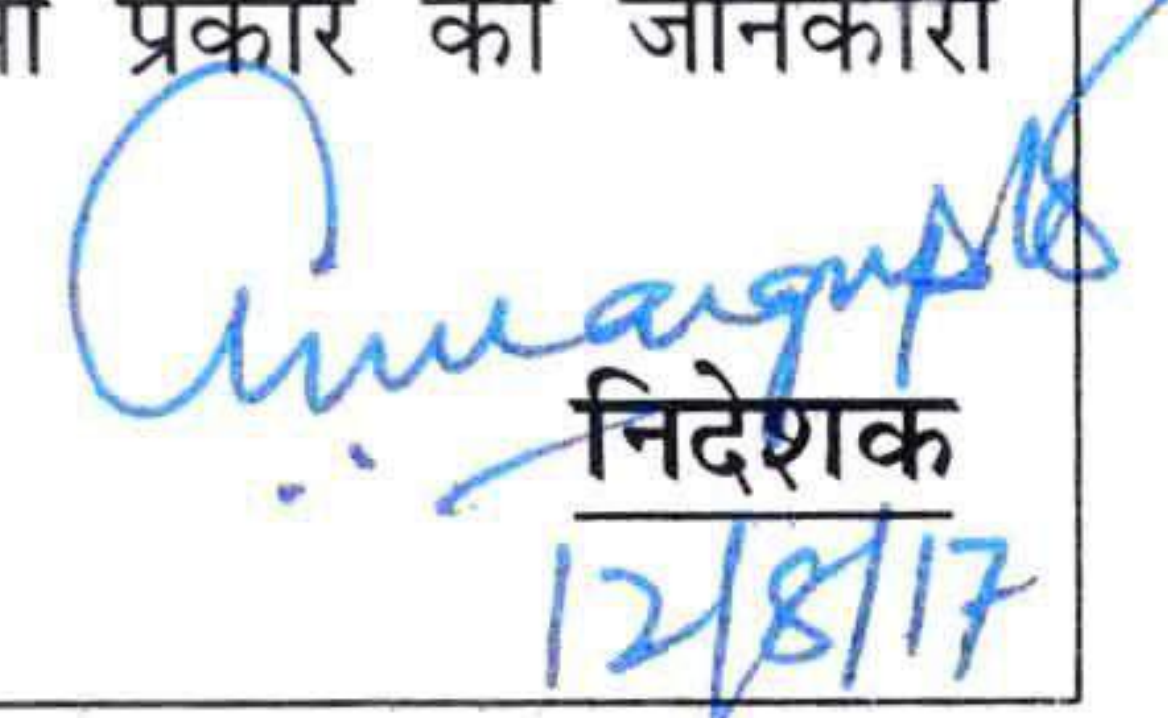 प्रकार की जानकारी
निदेशक
12/8/17